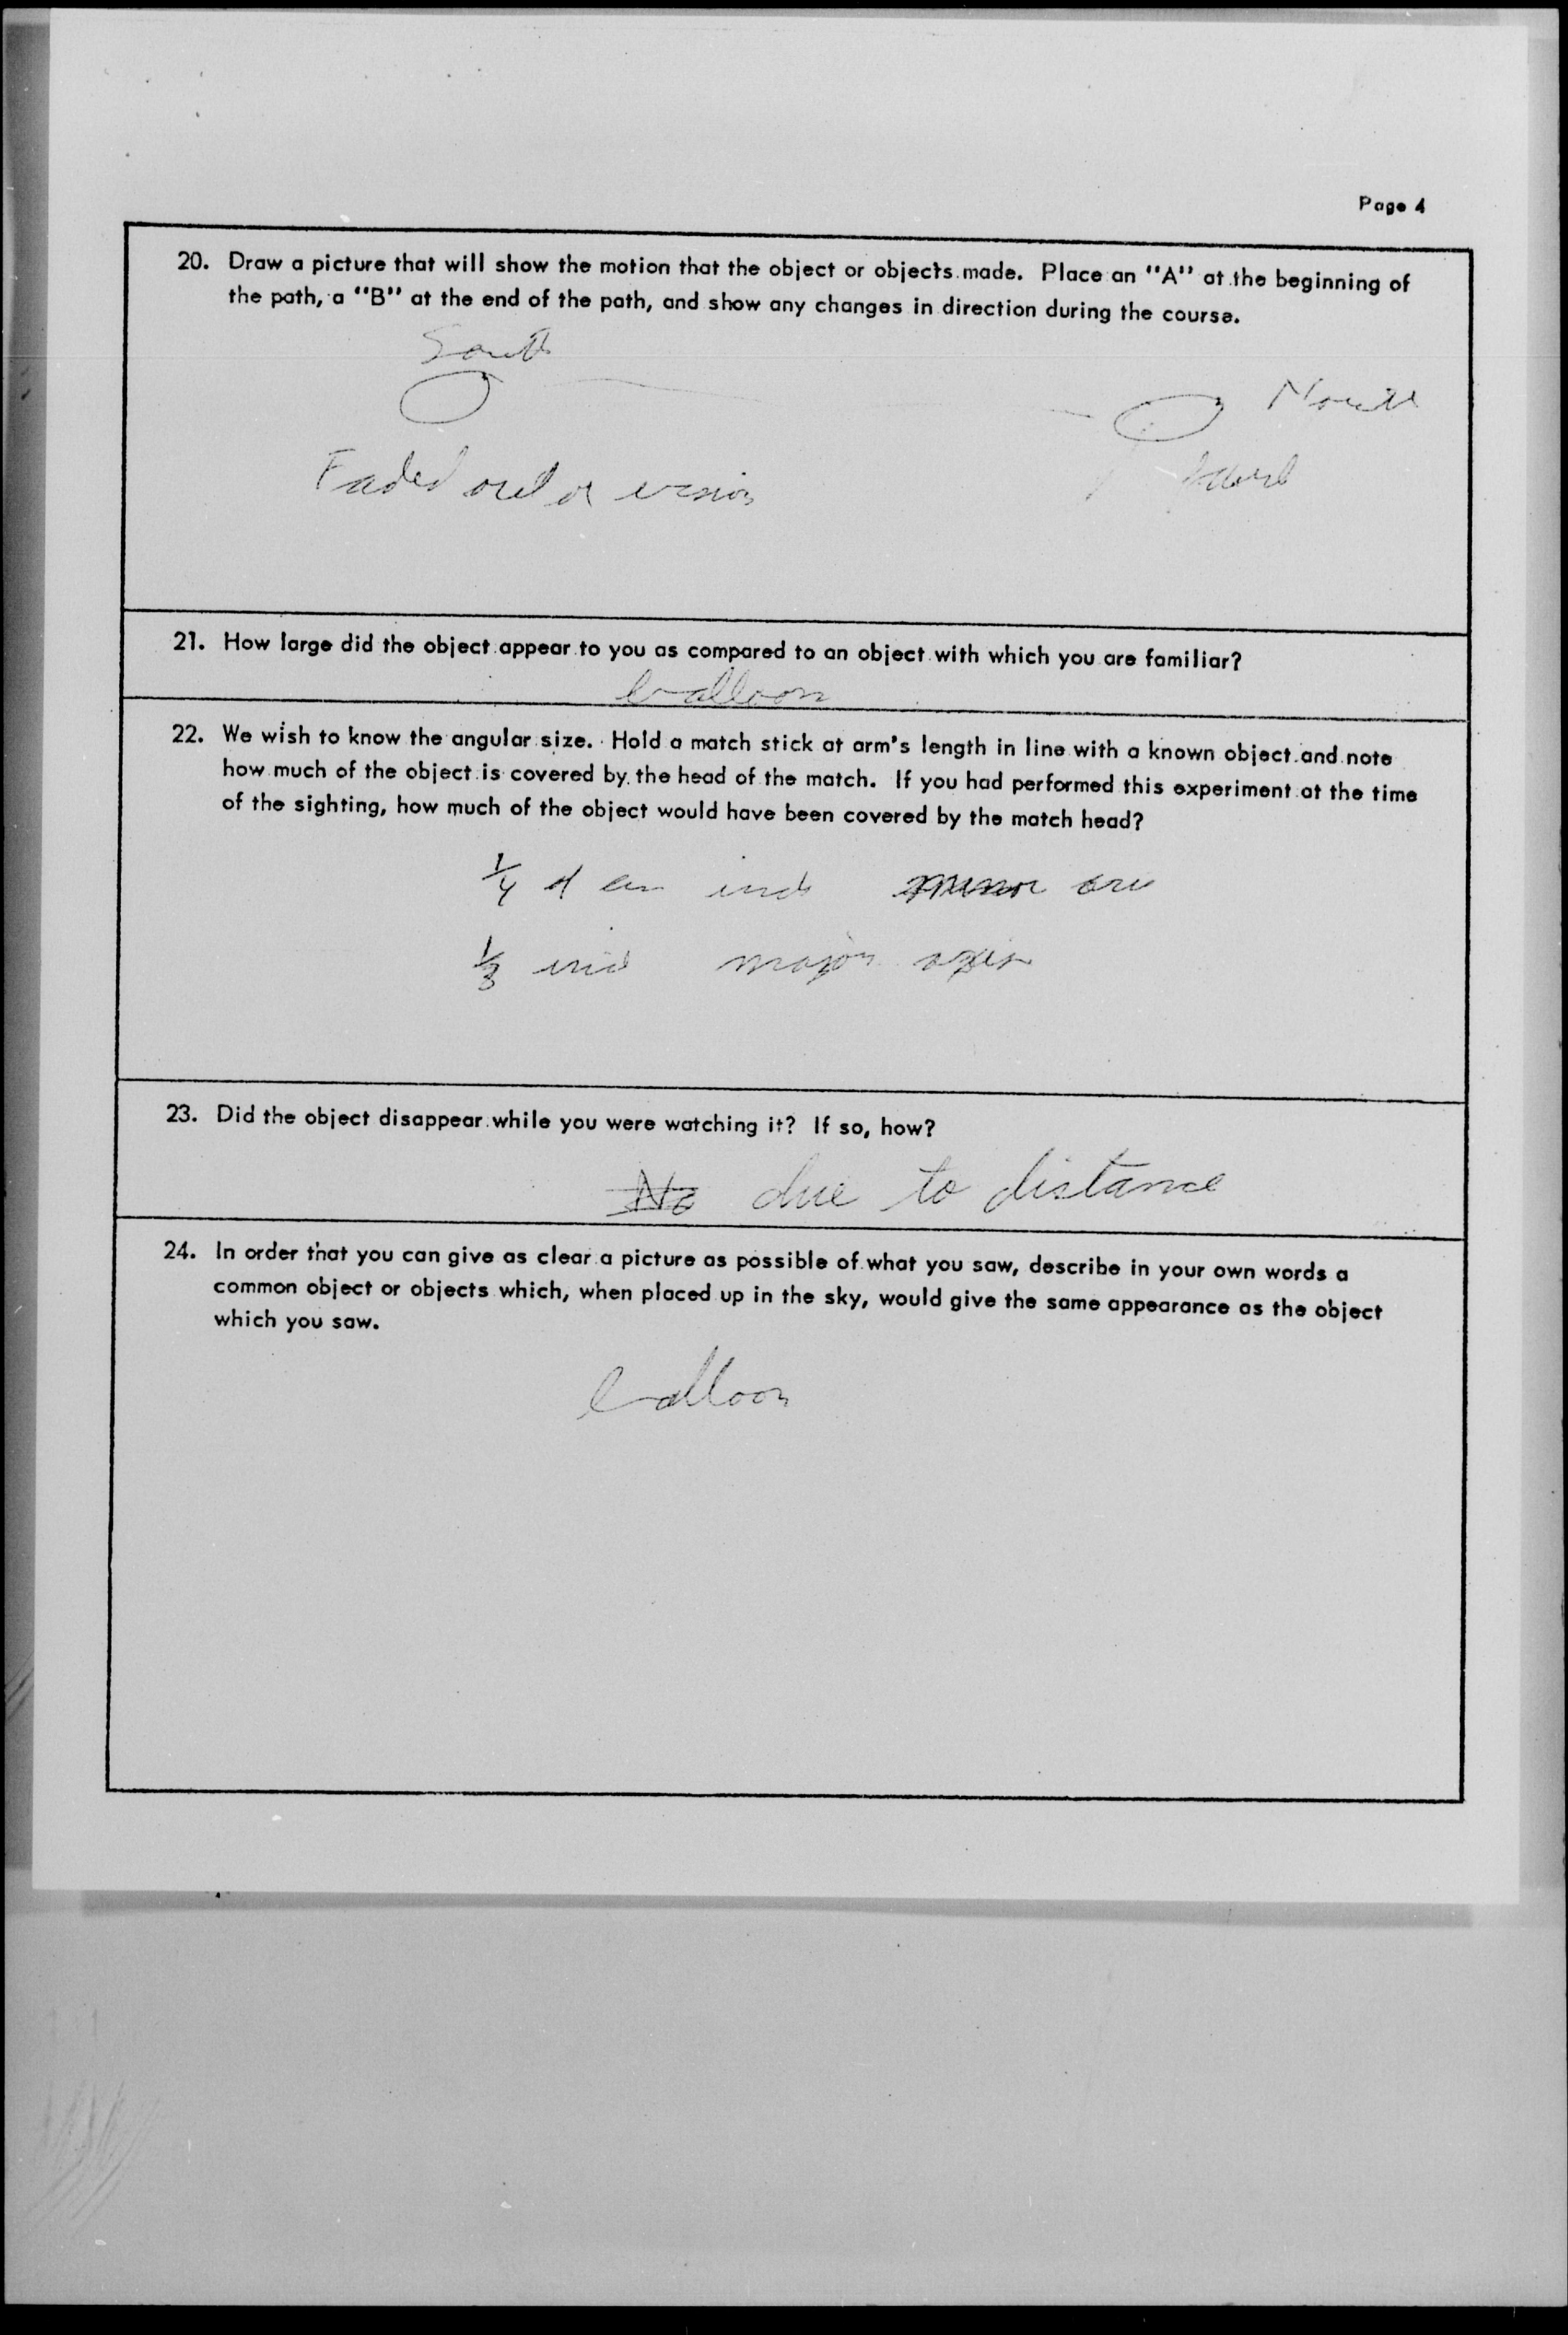 Page 4
20. Draw a picture that will show the motion that the object or objects made. Place an "A" at the beginning of
the path, a "B" at the end of the path, and show any changes in direction during the course.
South
North
Faded out of vision
21. How large did the object appear to you as compared to an object with which you are familiar?
balloon
22. We wish to know the angular size. Hold a match stick at arm's length in line with a known object and note
how much of the object is covered by the head of the match. If you had performed this experiment at the time
of the sighting, how much of the object would have been covered by the match head?
1/4 of an inch minor
1/3 inch major axis
23. Did the object disappear while you were watching it? If so, how?
No due to distance
24. In order that you can give as clear a picture as possible of what you saw, describe in your own words a
common object or objects which, when placed up in the sky, would give the same appearance as the object
which you saw.
balloon